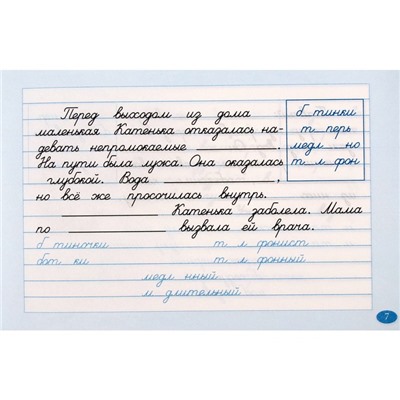 Перед выходом из дома
маленькая Катенька отказалась на-
девать непромокаемые ________.
На пути была лужа. Она оказалась
глубокой. Вода ________,
но всё же просочилась внутрь.
________ Катенька заболела. Мама
по ________ вызвала ей врача.
б тинки
т перь
медл но
т л фон
б тиночки т л фонист
бот ки т л фонный
медл нный
м длительный
7